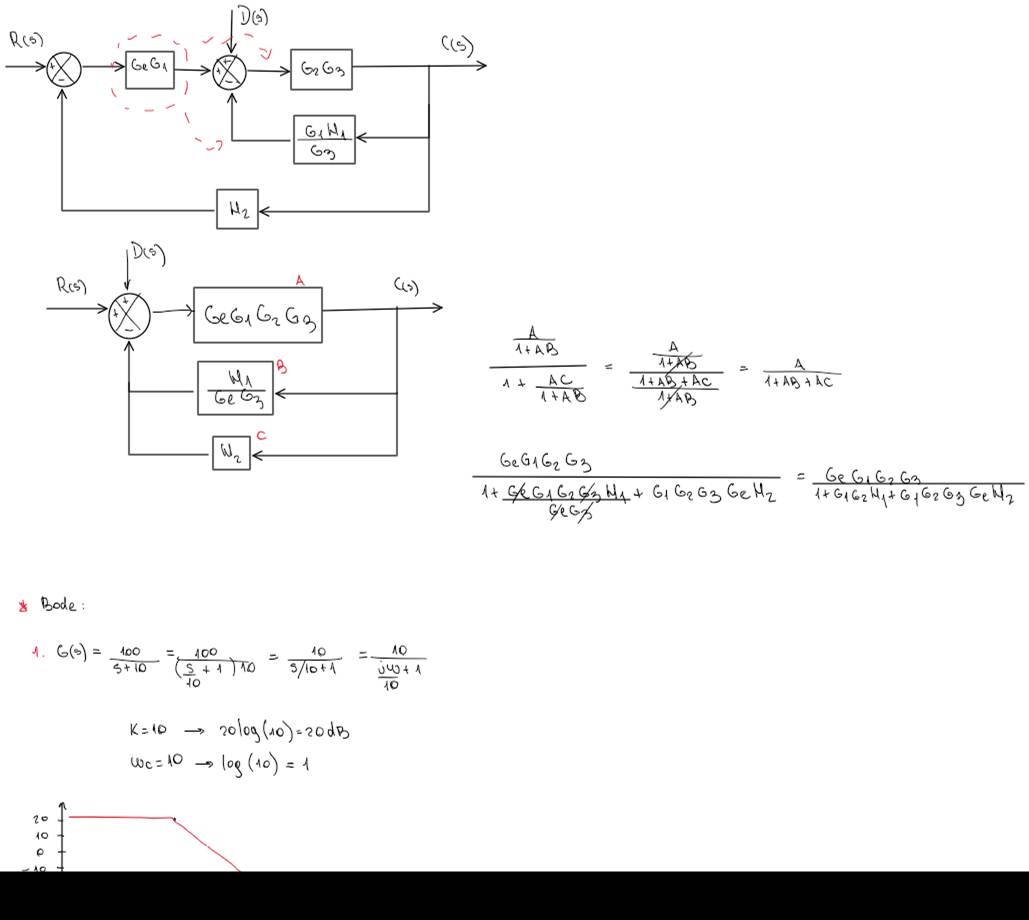 D(s)
R(s)
C(s)
GeG1
G2G3
G1H1
G3
H2
D(s)
R(s)
C(s)
A
GeG1G2G3
H1
GeG3
B
H2
C
A/(1+AB) / (1 + AC/(1+AB)) = A/(1+AB) / ((1+AB+AC)/(1+AB)) = A/(1+AB+AC)
GeG1G2G3 / (1 + GeG1G2G3H1/GeG3 + G1G2G3GeH2) = GeG1G2G3 / (1+G1G2H1+G1G2G3GeH2)
* Bode:
1. G(s) = 100/(s+10) = 100/((s/10 + 1)10) = 10/(s/10+1) = 10/(jω/10 + 1)
K=10 → 20log(10)=20dB
ωc=10 → log(10) = 1
20
10
0
-10